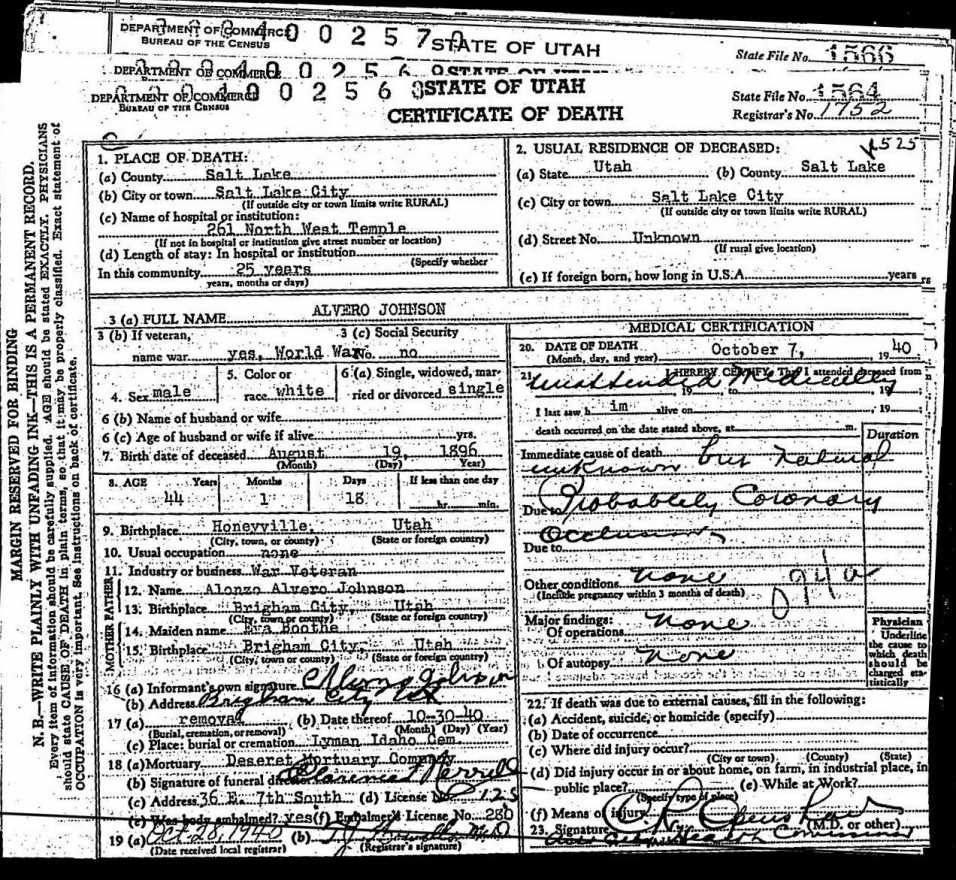 DEPARTMENT OF COMMERCE 0 0 2 5 7 STATE OF UTAH
BUREAU OF THE CENSUS
State File No. 1566
DEPARTMENT OF COMMERCE 0 0 2 5 6 STATE OF UTAH
DEPARTMENT OF COMMERCE 0 0 2 5 6 STATE OF UTAH
BUREAU OF THE CENSUS
State File No. 1564
CERTIFICATE OF DEATH
Registrar's No. 1752
MARGIN RESERVED FOR BINDING
N. B.—WRITE PLAINLY WITH UNFADING INK—THIS IS A PERMANENT RECORD.
Every item of information should be carefully supplied. AGE should be stated EXACTLY. PHYSICIANS
should state CAUSE OF DEATH in plain terms, so that it may be properly classified. Exact statement of
OCCUPATION is very important. See instructions on back of certificate.
1. PLACE OF DEATH:
(a) County Salt Lake
(b) City or town Salt Lake City
(If outside city or town limits write RURAL)
(c) Name of hospital or institution:
261 North West Temple
(If not in hospital or institution give street number or location)
(d) Length of stay: In hospital or institution
(Specify whether
In this community 25 years
years, months or days)
2. USUAL RESIDENCE OF DECEASED: 1525
(a) State Utah (b) County Salt Lake
(c) City or town Salt Lake City
(If outside city or town limits write RURAL)
(d) Street No. Unknown
(If rural give location)
(e) If foreign born, how long in U.S.A. years
rs
3 (a) FULL NAME ALVERO JOHNSON
3 (b) If veteran, 3 (c) Social Security
name war yes, World War No. no
4. Sex male
5. Color or
race white
6 (a) Single, widowed, mar-
ried or divorced single
6 (b) Name of husband or wife
6 (c) Age of husband or wife if alive yrs.
7. Birth date of deceased August 19, 1896
(Month) (Day) Year)
8. AGE Years Months Days If less than one day
44 1 18 hr. min.
9. Birthplace Honeyville, Utah
(City, town, or county) (State or foreign country)
10. Usual occupation none
11. Industry or business War Veteran
FATHER
12. Name Alonzo Alvero Johnson
13. Birthplace Brigham City, Utah
(City, town or county) (State or foreign country)
MOTHER
14. Maiden name Eva Boothe
15. Birthplace Brigham City, Utah
(City, town or county) (State or foreign country)
16 (a) Informant's own signature Johnson
(b) Address Brigham City Ut
17 (a) removal (b) Date thereof 10-30-40
(Burial, cremation, or removal) (Month) (Day) (Year)
(c) Place: burial or cremation Lyman Idaho Cem.
18 (a) Mortuary Deseret Mortuary Company
(b) Signature of funeral director Merrill
(c) Address 36 E. 7th South (d) License No. 125
(e) Was body embalmed? yes (f) Embalmer's License No. 280
19 (a) Oct 28, 1940 (b)
(Date received local registrar) (Registrar's signature)
MEDICAL CERTIFICATION
20. DATE OF DEATH October 7, 1940
(Month, day, and year)
21. I HEREBY CERTIFY, That I attended deceased from
Unattended Medically
19 to 19
I last saw h im alive on 19
death occurred on the date stated above, at m.
Duration
Immediate cause of death
unknown but natural
Due to Probablely Coronary
Occlusion
Due to
Other conditions none 94a
(Include pregnancy within 3 months of death)
Major findings:
Of operations none
Of autopsy none
Physician
Underline
the cause to
which death
should be
charged sta-
tistically
22. If death was due to external causes, fill in the following:
(a) Accident, suicide, or homicide (specify)
(b) Date of occurrence
(c) Where did injury occur?
(City or town) (County) (State)
(d) Did injury occur in or about home, on farm, in industrial place, in
public place? (e) While at Work?
(Specify type of place)
(f) Means of injury
23. Signature (M.D. or other)